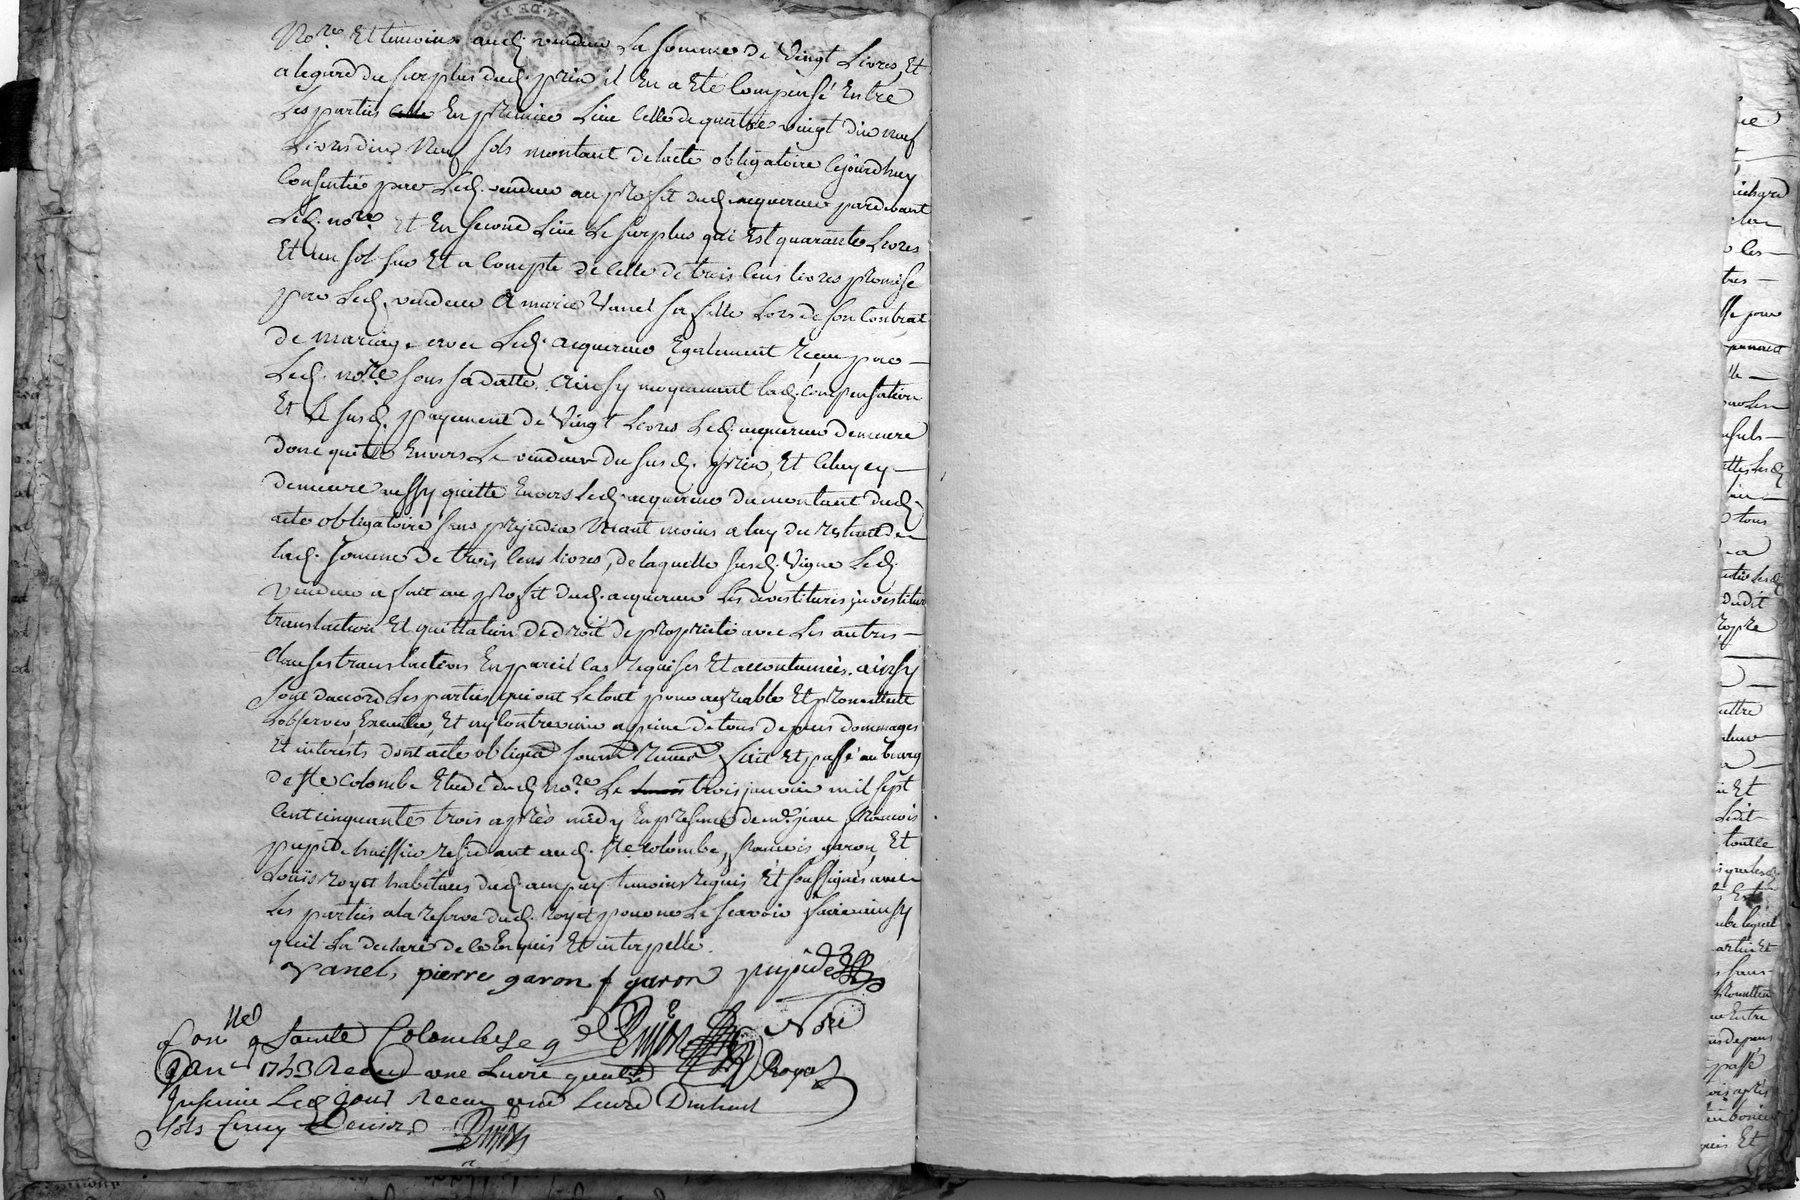 No.re Et temoins aud. vendeur La somme de Vingt Livres, Et
a legard du surplus dud. prix il En a Eté Compensé Entre
Les parties En premier Lieu Celle de quattre vingt dix neuf
Livres dix Neuf sols montant de lacte obligatoire Cejourdhuy
Consentie par Led. vendeur au profit dud. acquereur pardevant
Led. no.re Et En second Lieu Le surplus qui Est quarante Livres
Et un sol sur Et a Compte de Celle de trois Cens livres promise
par Led. vendeur A marie Vanel sa fille Lors de son Contrat
de mariage avec Led. acquereur Egalement reçeu par
Led. no.re sous sa datte. Ainsy moyennant lad. Compensation
Et Le susd. payement de Vingt Livres Led. acquereur demeure
donc quitte Envers Le vendeur du susd. prix, Et Celuy cy
demeure aussy quitte Envers Led. acquereur du montant dud.
acte obligatoire sans prejudice Neant moins a luy du restant de
lad. somme de trois Cens livres, de laquelle susd. Vigne Led.
Vendeur a fait au profit dud. acquereur Les devestitures, investiture
translaction Et quittation de droit de proprieté avec Les autres
Clauses translactives En pareil Cas requises Et accoutumées. ainsy
sont daccord Les parties qui ont Le tout pour agreable Et promettent
Lobserver, Executer, Et ny Contrevenir a peine de tous depens dommages
Et interests dont acte obligea.on soum.on Renon.on fait Et passé au bourg
de ste Colombe Etude dud. No.re Le trois janvier mil sept
Cent cinquante trois après midy En presence de m.e jean françois
pupide huissier residant aud. ste Colombe, françois garon Et
Louis Royet habitans dud. ampuy temoins requis Et soussignés avec
Les parties a la reserve dud. Royet pour ne Le scavoir faire ainsy
quil La declaré de Ce Enquis Et interpellé.
Vanel pierre garon f garon pupide
Con.llé a Sainte Colombe Le 9e
Janv. 1753 Receu une Livre
Led. jour Receu une Livre
sols Cinq Deniers
No.re
Royal